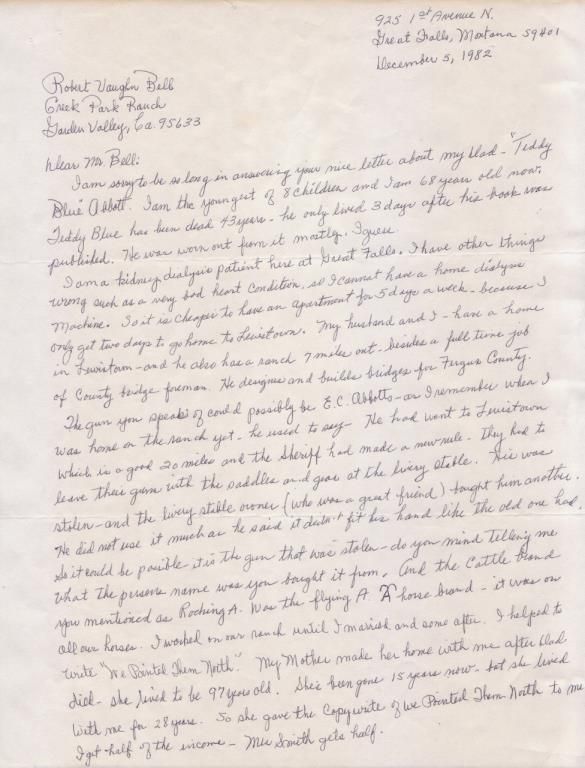 925 1st Avenue N.
Great Falls, Montana 59401
December 5, 1982
Robert Vaughn Bell
Creek Park Ranch
Garden Valley, Ca. 95633
Dear Mr. Bell:
I am sorry to be so long in answering your nice letter about my Dad - "Teddy
Blue" Abbott. I am the youngest of 8 children and I am 68 years old now.
Teddy Blue has been dead 43 years - he only lived 3 days after his book was
published. He was worn out from it mostly, I guess.
I am a kidney dialysis patient here at Great Falls. I have other things
wrong such as a very bad heart condition, so I cannot have a home dialysis
Machine. So it is cheaper to have an apartment for 5 days a week - because I
only get two days to go home to Lewistown. My husband and I - have a home
in Lewistown - and he also has a ranch 7 miles out - besides a full time job
of County bridge foreman. He designes and builds bridges for Fergus County.
The gun you speak of could possibly be E.C. Abbotts - as I remember when I
was home on the ranch yet - he used to say - He had went to Lewistown
which is a good 20 miles and the Sheriff had made a new rule - they had to
leave their guns with the saddles and gear at the livery stable. His was
stolen - and the livery stable owner (who was a great friend) bought him another.
He did not use it much as he said it didn't fit his hand like the old one had.
So it could be posible - it is the gun that was stolen - do you mind telling me
what the persons name was you bought it from. And the Cattle brand
you mentioned as Rocking A. Was the flying A. A horse brand - it was on
all our horses. I worked on our ranch until I married and some after. I helped to
write "We Pointed Them North." My Mother made her home with me after Dad
died - she lived to be 97 years old. She's been gone 15 years now - but she lived
with me for 28 years. So she gave the Copywrite of We Pointed Them North to me
I get half of the income - Mrs Smith gets half.